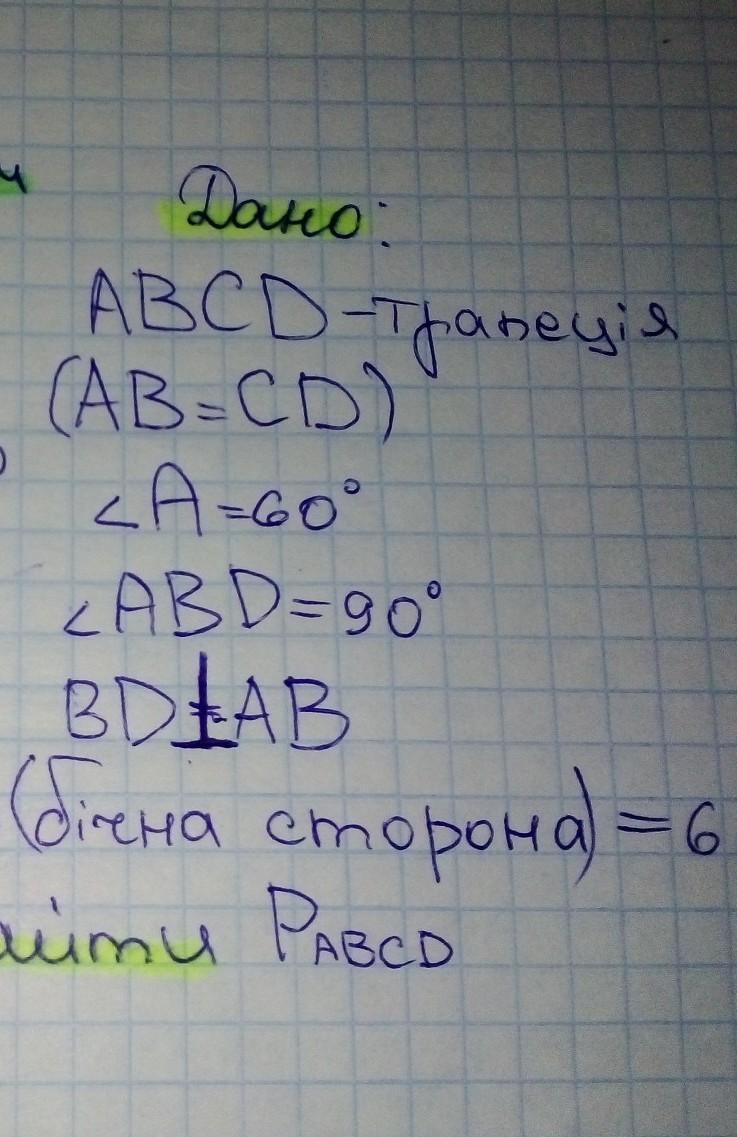 Дано:
ABCD-трапеція
(AB=CD)
<A=60°
<ABD=90°
BD⊥AB
(бічна сторона)=6
P ABCD